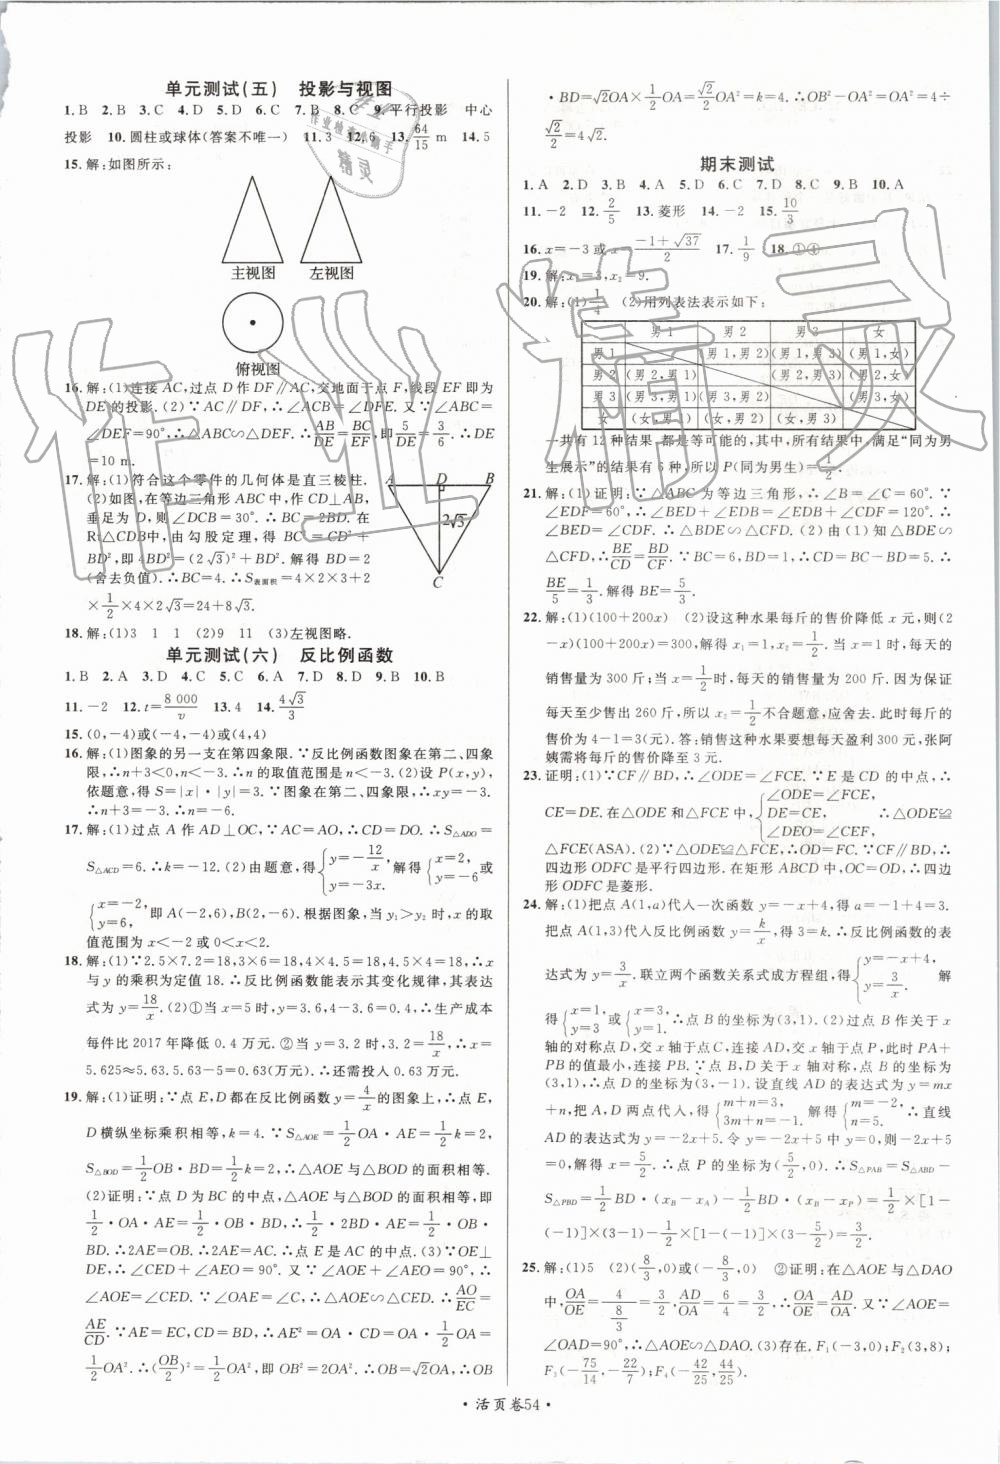 单元测试(五) 投影与视图
1.B 2.B 3.C 4.D 5.D 6.C 7.B 8.C 9.平行投影 中心
投影 10.圆柱或球体(答案不唯一) 11.3 12.6 13.64/15 m 14.5
15.解:如图所示:
主视图 左视图
俯视图
16.解:(1)连接 AC,过点 D 作 DF∥AC,交地面于点 F,线段 EF 即为
DE 的投影.(2)∵AC∥DF,∴∠ACB=∠DFE.又∵∠ABC=
∠DEF=90°,∴△ABC∽△DEF.∴AB/DE=BC/EF,即5/DE=3/6.∴DE
=10 m.
17.解:(1)符合这个零件的几何体是直三棱柱.
(2)如图,在等边三角形 ABC 中,作 CD⊥AB,
垂足为 D,则∠DCB=30°.∴BC=2BD.在
Rt△CDB中,由勾股定理,得 BC²=CD²+
BD²,即 4BD²=(2√3)²+BD².解得 BD=2
(舍去负值).∴BC=4.∴S表面积=4×2×3+2
×1/2×4×2√3=24+8√3.
A D B
2√3
C
18.解:(1)3 1 1 (2)9 11 (3)左视图略.
单元测试(六) 反比例函数
1.B 2.A 3.D 4.C 5.C 6.A 7.D 8.D 9.B 10.B
11.-2 12.t=8 000/v 13.4 14.4√3/3
15.(0,-4)或(-4,-4)或(4,4)
16.解:(1)图象的另一支在第四象限.∵反比例函数图象在第二、四象
限,∴n+3<0,解得 n<-3.∴n 的取值范围是 n<-3.(2)设 P(x,y),
依题意,得 S=|x|·|y|=3.∵图象在第二、四象限,∴xy=-3.
∴n+3=-3.∴n=-6.
17.解:(1)过点 A 作 AD⊥OC,∵AC=AO,∴CD=DO.∴S△ADO=
S△ACD=6.∴k=-12.(2)由题意,得{y=-12/x, y=-3x. 解得{x=2, y=-6或
{x=-2, y=6, 即 A(-2,6),B(2,-6).根据图象,当 y₁>y₂ 时,x 的取
值范围为 x<-2 或0<x<2.
18.解:(1)∵2.5×7.2=18,3×6=18,4×4.5=18,4.5×4=18,∴x
与 y 的乘积为定值 18.∴反比例函数能表示其变化规律,其表达
式为 y=18/x.(2)①当 x=5 时,y=3.6,4-3.6=0.4,∴生产成本
每件比 2017 年降低 0.4 万元.②当 y=3.2 时,3.2=18/x.∴x=
5.625≈5.63,5.63-5=0.63(万元).∴还需投入 0.63 万元.
19.解:(1)证明:∵点 E,D 都在反比例函数 y=4/x 的图象上,∴点 E,
D 横纵坐标乘积相等,k=4.∵S△AOE=1/2OA·AE=1/2k=2,
S△BOD=1/2OB·BD=1/2k=2,∴△AOE 与△BOD 的面积相等.
(2)证明:∵点 D 为 BC 的中点,△AOE 与△BOD 的面积相等,即
1/2·OA·AE=1/2·OB·BD,∴1/2·2BD·AE=1/2·OB·
BD.∴2AE=OB.∴2AE=AC.∴点 E 是 AC 的中点.(3)∵OE⊥
DE,∴∠CED+∠AEO=90°.又∵∠AOE+∠AEO=90°,∴
∠AOE=∠CED.∵∠OAE=∠C,∴△AOE∽△CED.∴AO/EC=
AE/CD.∵AE=EC,CD=BD,∴AE²=OA·CD.∴AE²=OA·1/2OA=
1/2OA².∴(OB/2)²=1/2OA²,即 OB²=2OA².∴OB=√2OA.∴OB
·BD=√2OA×1/2OA=√2/2OA²=k=4.∴OB²-OA²=OA²=4÷
√2/2=4√2.
期末测试
1.A 2.D 3.B 4.A 5.D 6.C 7.D 8.C 9.B 10.A
11.-2 12.2/5 13.菱形 14.-2 15.10/3
16.x=-3 或 x=(-1+√37)/2 17.1/9 18.①④
19.解:x₁=3,x₂=9.
20.解:(1)1/4 (2)用列表法表示如下:
男 1 男 2 男 3 女
男 1 (男 1,男 2) (男 1,男 3) (男 1,女)
男 2 (男 2,男 1) (男 2,男 3) (男 2,女)
男 3 (男 3,男 1) (男 3,男 2) (男 3,女)
女 (女,男 1) (女,男 2) (女,男 3)
一共有 12 种结果,都是等可能的,其中,所有结果中,满足“同为男
生展示”的结果有 6 种,所以 P(同为男生)=1/2.
21.解:(1)证明:∵△ABC 为等边三角形,∴∠B=∠C=60°.∵
∠EDF=60°,∴∠BED+∠EDB=∠EDB+∠CDF=120°.∴
∠BED=∠CDF.∴△BDE∽△CFD.(2)由(1)知△BDE∽
△CFD,∴BE/CD=BD/CF.∵BC=6,BD=1,∴CD=BC-BD=5.∴
BE/5=1/3.解得 BE=5/3.
22.解:(1)(100+200x) (2)设这种水果每斤的售价降低 x 元,则(2
-x)(100+200x)=300,解得 x₁=1,x₂=1/2.当 x=1 时,每天的
销售量为 300 斤;当 x=1/2时,每天的销售量为 200 斤.∵为保证
每天至少售出 260 斤,∴x₂=1/2不合题意,应舍去.此时每斤的
售价为 4-1=3(元).答:销售这种水果要想每天盈利 300 元,张阿
姨需将每斤的售价降至 3 元.
23.证明:(1)∵CF∥BD,∴∠ODE=∠FCE.∵E 是 CD 的中点,∴
CE=DE.在△ODE 和△FCE 中,{∠ODE=∠FCE, DE=CE, ∠DEO=∠CEF, ∴△ODE≌
△FCE(ASA).(2)∵△ODE≌△FCE,∴OD=FC.∵CF∥BD,∴四
边形 ODFC 是平行四边形.在矩形 ABCD 中,OC=OD,∴四边
形 ODFC 是菱形.
24.解:(1)把点 A(1,a)代入一次函数 y=-x+4,得 a=-1+4=3.
把点 A(1,3)代入反比例函数 y=k/x,得 k=3.∴反比例函数的表
达式为 y=3/x.联立两个函数关系式成方程组,得{y=-x+4, y=3/x. 解
得{x=1, y=3或{x=3, y=1.∴点 B 的坐标为(3,1).(2)过点 B 作关于 x
轴的对称点 D,交 x 轴于点C,连接 AD,交 x 轴于点 P,此时 PA+
PB 的值最小,连接 PB.∵点 B,D 关于 x 轴对称,点 B 的坐标为
(3,1),∴点 D 的坐标为(3,-1).设直线 AD 的表达式为 y=mx
+n,把 A,D 两点代入,得{m+n=3, 3m+n=-1.解得{m=-2, n=5.∴直线
AD 的表达式为 y=-2x+5.令 y=-2x+5 中 y=0,则-2x+5
=0,解得 x=5/2.∴点 P 的坐标为(5/2,0).∴S△PAB=S△ABD-
S△PBD=1/2BD·(xB-xA)-1/2BD·(xB-xP)=1/2×[1-
(-1)]×(3-1)-1/2×[1-(-1)]×(3-5/2)=3/2.
25.解:(1)5 (2)(8/3,0)或(-8/3,0) ②证明:在△AOE 与△DAO
中,OA/OE=4/(8/3)=3/2,AD/OA=6/4=3/2,∴OA/OE=AD/OA.又∵∠AOE=
∠OAD=90°,∴△AOE∽△DAO.(3)存在.F₁(-3,0);F₂(3,8);
F₃(-75/14,-22/7);F₄(-42/25,44/25).
·活页卷54·
作业精灵